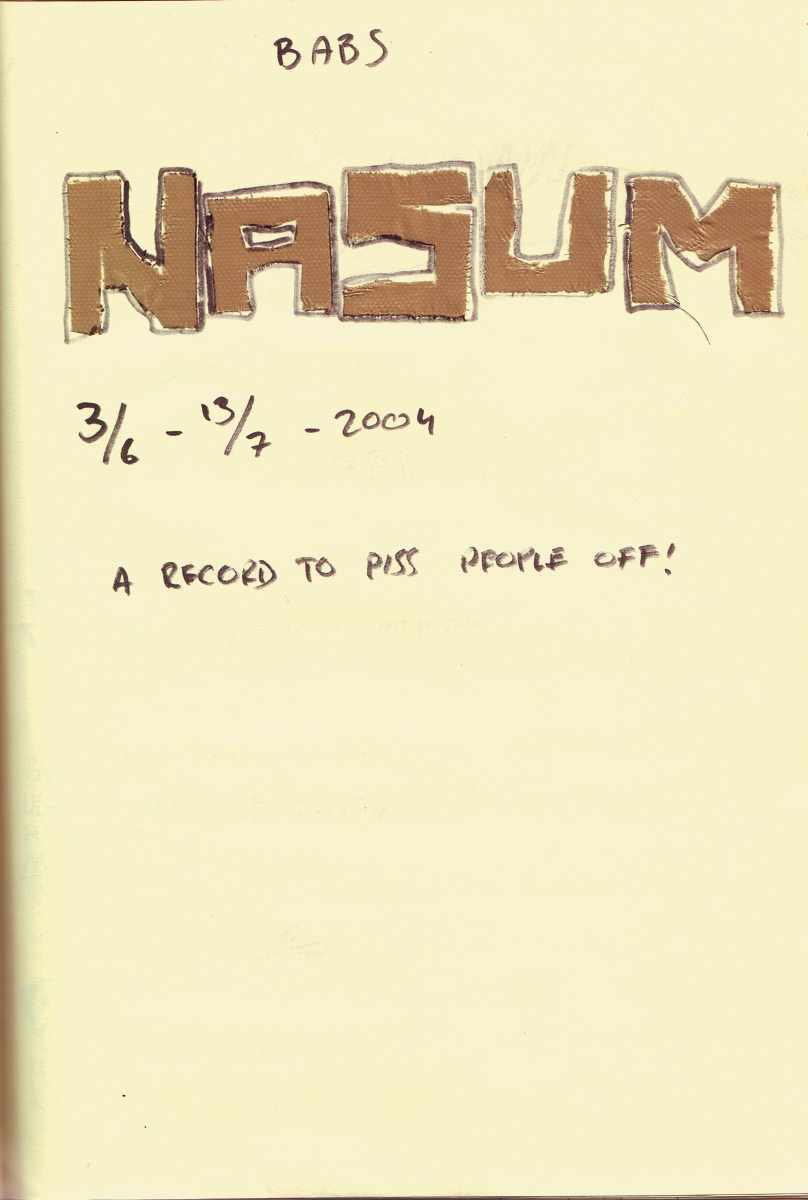 BABS
NASUM
3/6 - 13/7 - 2004
A RECORD TO PISS PEOPLE OFF!